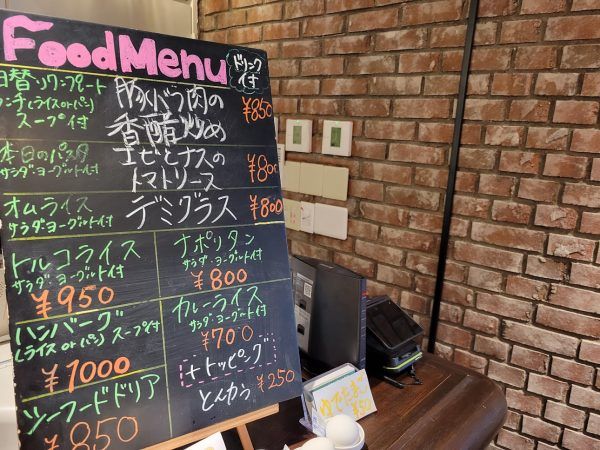 Food Menu
ドリンク
付
日替りワンプレート
ランチ(ライスorパン)
スープ付
豚バラ肉の
香醋炒め
¥850
本日のパスタ
サラダ・ヨーグルト付
エビとナスの
トマトソース
¥800
オムライス
サラダ・ヨーグルト付
デミグラス
¥800
トルコライス
サラダ・ヨーグルト付
¥950
ナポリタン
サラダ・ヨーグルト付
¥800
ハンバーグ
(ライスorパン) スープ付
¥1000
カレーライス
サラダ・ヨーグルト付
¥700
シーフードドリア
¥850
+トッピング
とんかつ ¥250
ゆでたまご
¥50